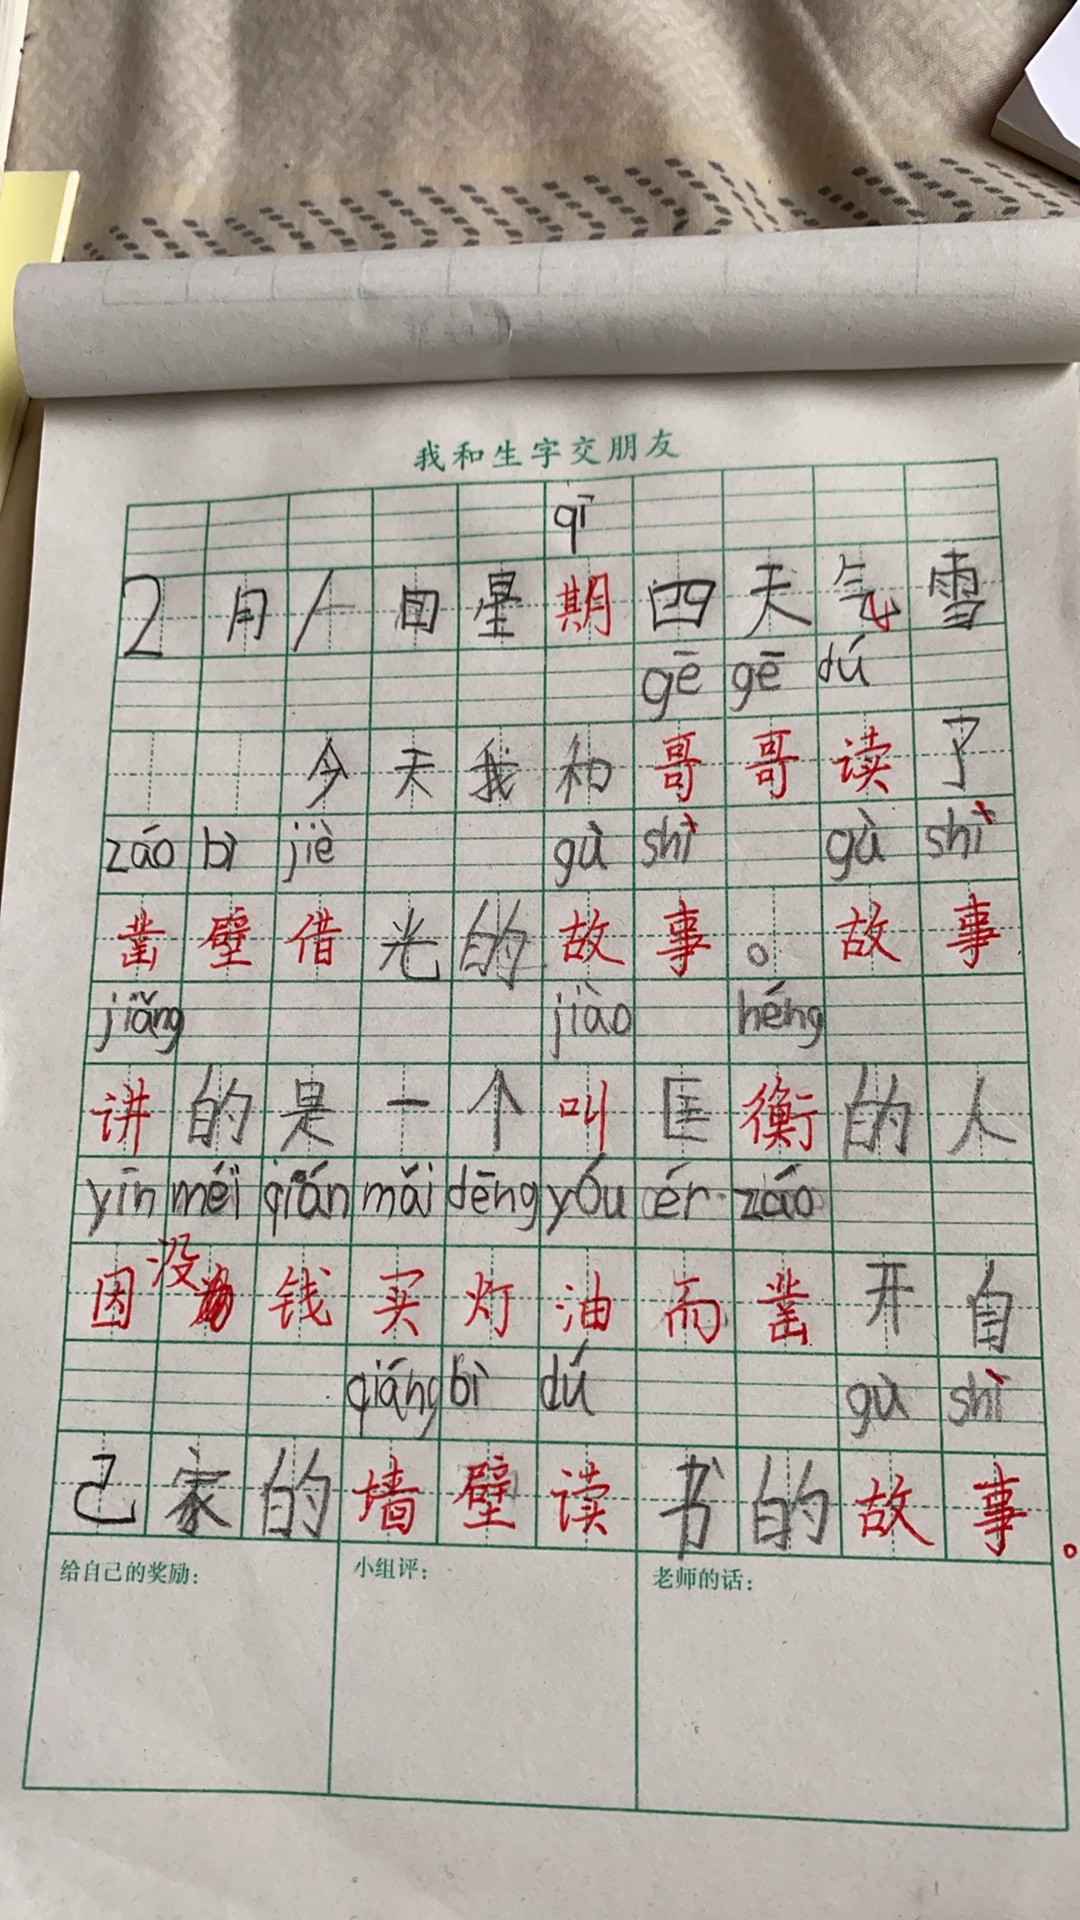 我和生字交朋友
qī
2月1日星期四天气雪
gē gē dú
今天我和哥哥读了
záo bì jiè gù shì gù shì
凿壁借光的故事。故事
jiǎng jiào héng
讲的是一个叫匡衡的人
yīn méi qián mǎi dēng yóu ér záo
因没钱买灯油而凿开自
qiáng bì dú gù shì
己家的墙壁读书的故事。
给自己的奖励: 小组评: 老师的话: